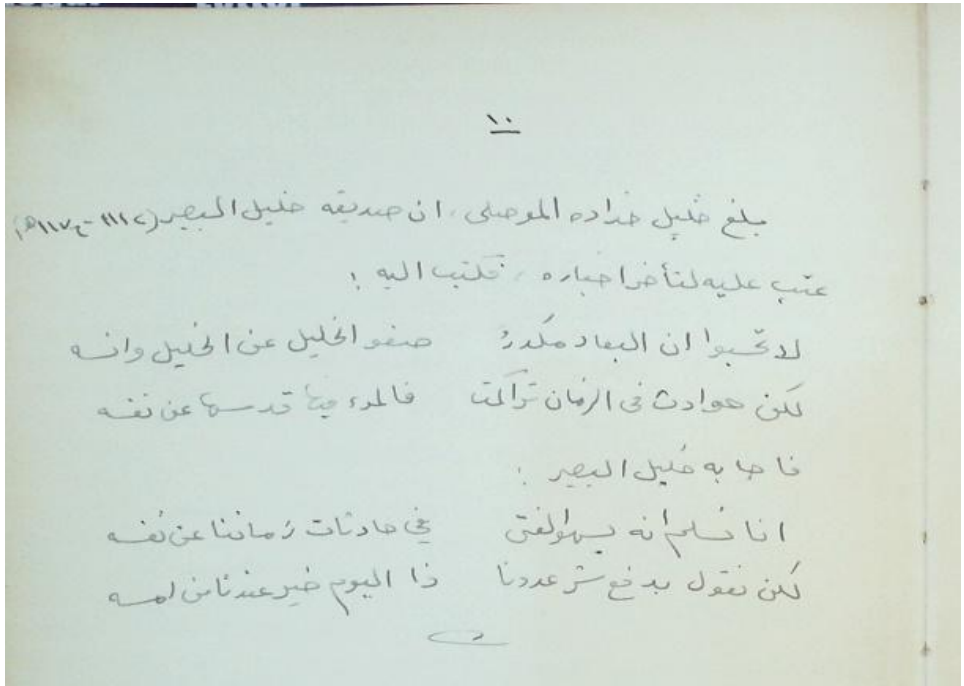 ١٠
بلغ خليل خداده الموصلي، ان صديقه خليل البصير (١١١٢ - ١١٧٦هـ)
عتب عليه لتأخر اخباره، فكتب اليه:
لا تحسبوا ان البعاد مكدرٌ صفو الخليل عن الخليل وانسه
لكن حوادث في الزمان تراكمت فالمرء فيها قد سها عن نفسه
فاجابه خليل البصير:
انا نسلم انه يسهو الفتى في حادثات زماننا عن نفسه
لكن نقول بدفع شر عدونا ذا اليوم خير عندنا من امسه